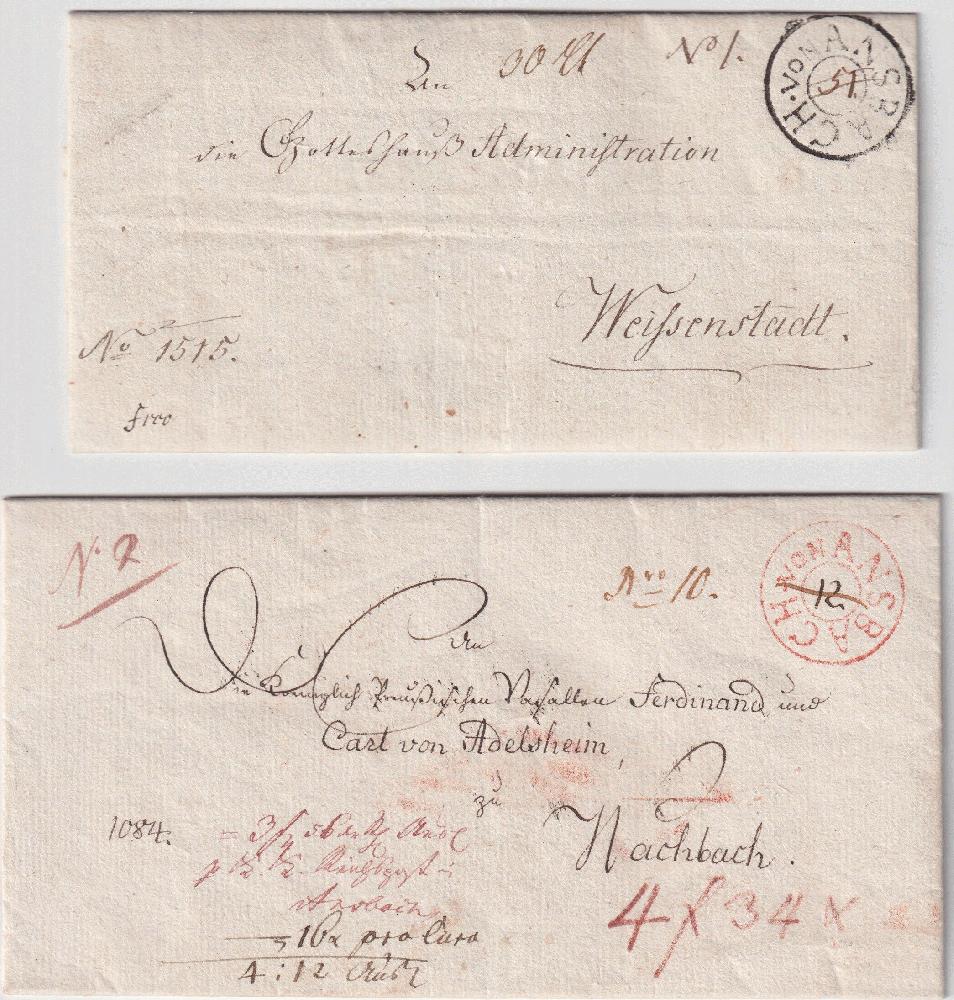 An
No 1.
CH. VON ANSBA
51
die Gotteshauß Administration
Weissenstadt.
No 1515.
frco
N. 2
No 10.
VON ANSBACH
12
An
die Königlich Preußischen Vasallen Ferdinand und
Carl von Adelsheim,
zu
Wachbach.
1084.
= 3 f
Ansbach
16x pro Cura
4 f 34 x
4 : 12